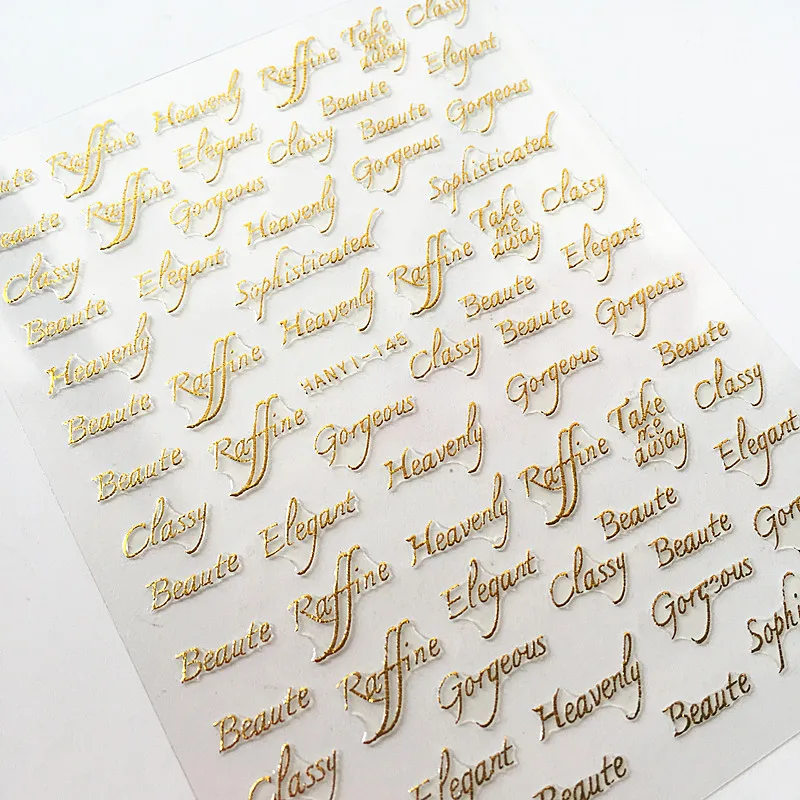 Classy
Take
me
away
Raffine
Elegant
Heavenly
Beaute
Gorgeous
Raffine
Elegant
Classy
Beaute
Raffine
Gorgeous
Gorgeous
Sophisticated
Heavenly
Take
me
away
Classy
Classy
Elegant
Sophisticated
Raffine
Elegant
Beaute
Heavenly
Beaute
Gorgeous
Heavenly
Raffine
HANYI-145
Classy
Beaute
Beaute
Beaute
Raffine
Gorgeous
Gorgeous
Take
me
away
Classy
Beaute
Heavenly
Raffine
Elegant
Classy
Elegant
Heavenly
Beaute
Beaute
Beaute
Raffine
Elegant
Classy
Gorgeous
Beaute
Raffine
Gorgeous
Heavenly
Beaute
Beaute
Classy
Elegant
Beaute